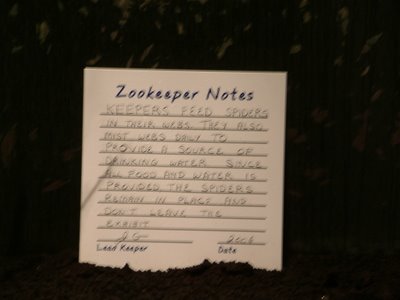 Zookeeper Notes
KEEPERS FEED SPIDERS
IN THEIR WEBS. THEY ALSO
MIST WEBS DAILY TO
PROVIDE A SOURCE OF
DRINKING WATER SINCE
ALL FOOD AND WATER IS
PROVIDED THE SPIDERS
REMAIN IN PLACE AND
DON'T LEAVE THE
EXHIBIT
JG 2006
Lead Keeper Date